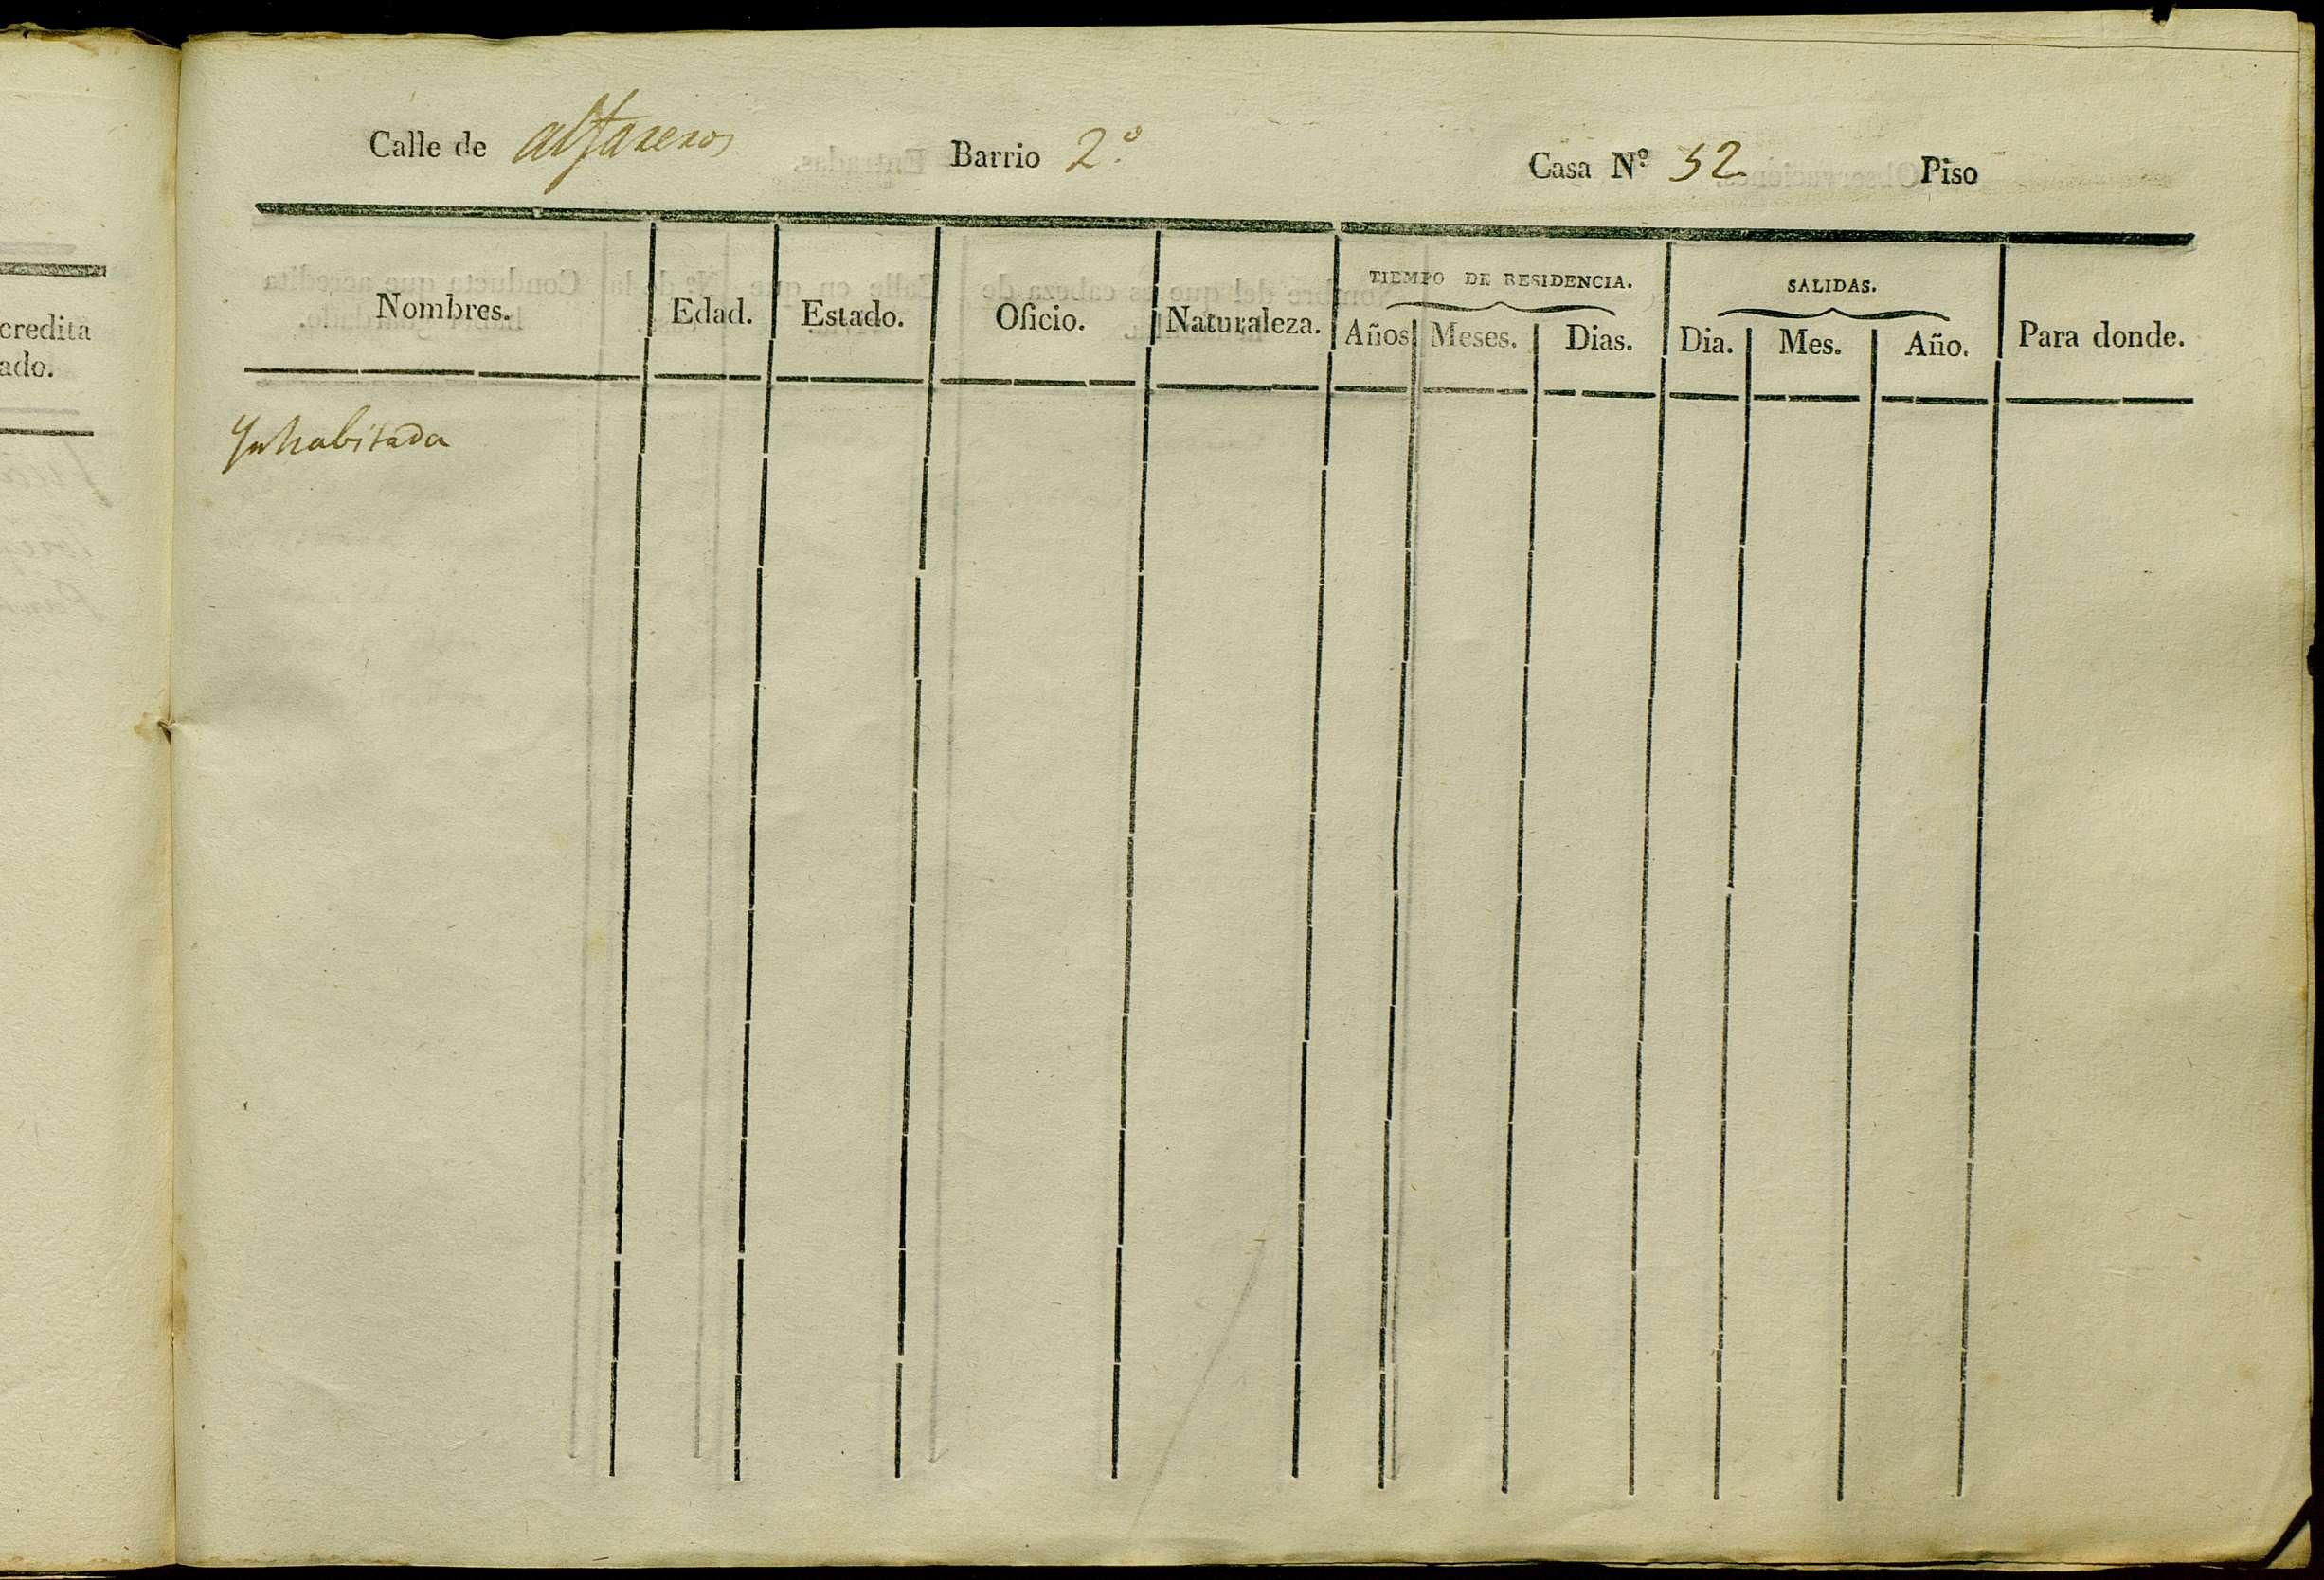 credita
ado.
Calle de alfareros Barrio 2.º Casa Nº 52 Piso
TIEMPO DE RESIDENCIA. SALIDAS.
Nombres. Edad. Estado. Oficio. Naturaleza. Años Meses. Dias. Dia. Mes. Año. Para donde.
Ynhabitada